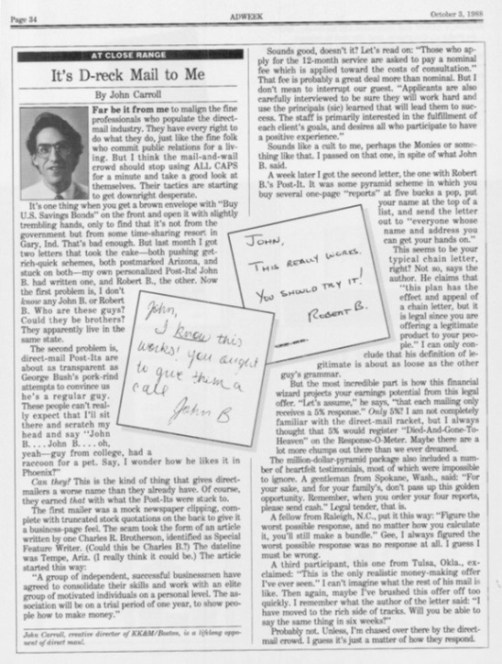 Page 34
ADWEEK
October 3, 1988
AT CLOSE RANGE
It's D-reck Mail to Me
By John Carroll
Far be it from me to malign the fine
professionals who populate the direct-
mail industry. They have every right to
do what they do, just like the fine folk
who commit public relations for a liv-
ing. But I think the mail-and-wail
crowd should stop using ALL CAPS
for a minute and take a good look at
themselves. Their tactics are starting
to get downright desperate.
It's one thing when you get a brown envelope with "Buy
U.S. Savings Bonds" on the front and open it with slightly
trembling hands, only to find that it's not from the
government but from some time-sharing resort in
Gary, Ind. That's bad enough. But last month I got
two letters that took the cake—both pushing get-
rich-quick schemes, both postmarked Arizona, and
stuck on both—my own personalized Post-Its! John
B. had written one, and Robert B., the other. Now
the first problem is, I don't
know any John B. or Robert
B. Who are these guys?
Could they be brothers?
They apparently live in the
same state.
The second problem is,
direct-mail Post-Its are
about as transparent as
George Bush's pork-rind
attempts to convince us
he's a regular guy.
These people can't real-
ly expect that I'll sit
there and scratch my
head and say "John
B. . . . John B. . . . oh,
yeah—guy from college, had a
raccoon for a pet. Say, I wonder how he likes it in
Phoenix?"
Can they! This is the kind of thing that gives direct-
mailers a worse name than they already have. Of course,
they earned that with what the Post-Its were stuck to.
The first mailer was a mock newspaper clipping, com-
plete with truncated stock quotations on the back to give it
a business-page feel. The scam took the form of an article
written by one Charles R. Brotherson, identified as Special
Feature Writer. (Could this be Charles B.?) The dateline
was Tempe, Ariz. (I really think it could be.) The article
started this way:
"A group of independent, successful businessmen have
agreed to consolidate their skills and work with an elite
group of motivated individuals on a personal level. The as-
sociation will be on a trial period of one year, to show peo-
ple how to make money."
John Carroll, creative director of KK&M/Boston, is a lifelong oppo-
nent of direct mail.
John,
I know this
works! You ought
to give them a
call
John B
JOHN,
THIS REALLY WORKS.
YOU SHOULD TRY IT!
ROBERT B.
Sounds good, doesn't it? Let's read on: "Those who ap-
ply for the 12-month service are asked to pay a nominal
fee which is applied toward the costs of consultation."
That fee is probably a great deal more than nominal. But I
don't mean to interrupt our guest. "Applicants are also
carefully interviewed to be sure they will work hard and
use the principals (sic) learned that will lead them to suc-
cess. The staff is primarily interested in the fulfillment of
each client's goals, and desires all who participate to have
a positive experience."
Sounds like a cult to me, perhaps the Monies or some-
thing like that. I passed on that one, in spite of what John
B. said.
A week later I got the second letter, the one with Robert
B.'s Post-It. It was some pyramid scheme in which you
buy several one-page "reports" at five bucks a pop, put
your name at the top of a
list, and send the letter
out to "everyone whose
name and address you
can get your hands on."
This seems to be your
typical chain letter,
right? Not so, says the
author. He claims that
"this plan has the
effect and appeal of
a chain letter, but it
is legal since you are
offering a legitimate
product to your peo-
ple." I can only con-
clude that his definition of le-
gitimate is about as loose as the other
guy's grammar.
But the most incredible part is how this financial
wizard projects your earnings potential from this legal
offer. "Let's assume," he says, "that each mailing only
receives a 5% response." Only 5%? I am not completely
familiar with the direct-mail racket, but I always
thought that 5% would register "Died-And-Gone-To-
Heaven" on the Response-O-Meter. Maybe there are a
lot more chumps out there than we ever dreamed.
The million-dollar-pyramid package also included a num-
ber of heartfelt testimonials, most of which were impossible
to ignore. A gentleman from Spokane, Wash., said: "For
your sake, and for your family's, don't pass up this golden
opportunity. Remember, when you order your four reports,
please send cash." Legal tender, that is.
A fellow from Raleigh, N.C., put it this way: "Figure the
worst possible response, and no matter how you calculate
it, you'll still make a bundle." Gee, I always figured the
worst possible response was no response at all. I guess I
must be wrong.
A third participant, this one from Tulsa, Okla., ex-
claimed: "This is the only realistic money-making offer
I've ever seen." I can't imagine what the rest of his mail is
like. Then again, maybe I've brushed this offer off too
quickly. I remember what the author of the letter said: "I
have moved to the rich side of tracks. Will you be able to
say the same thing in six weeks?"
Probably not. Unless, I'm chased over there by the direct-
mail crowd. I guess it's just a matter of how they respond.